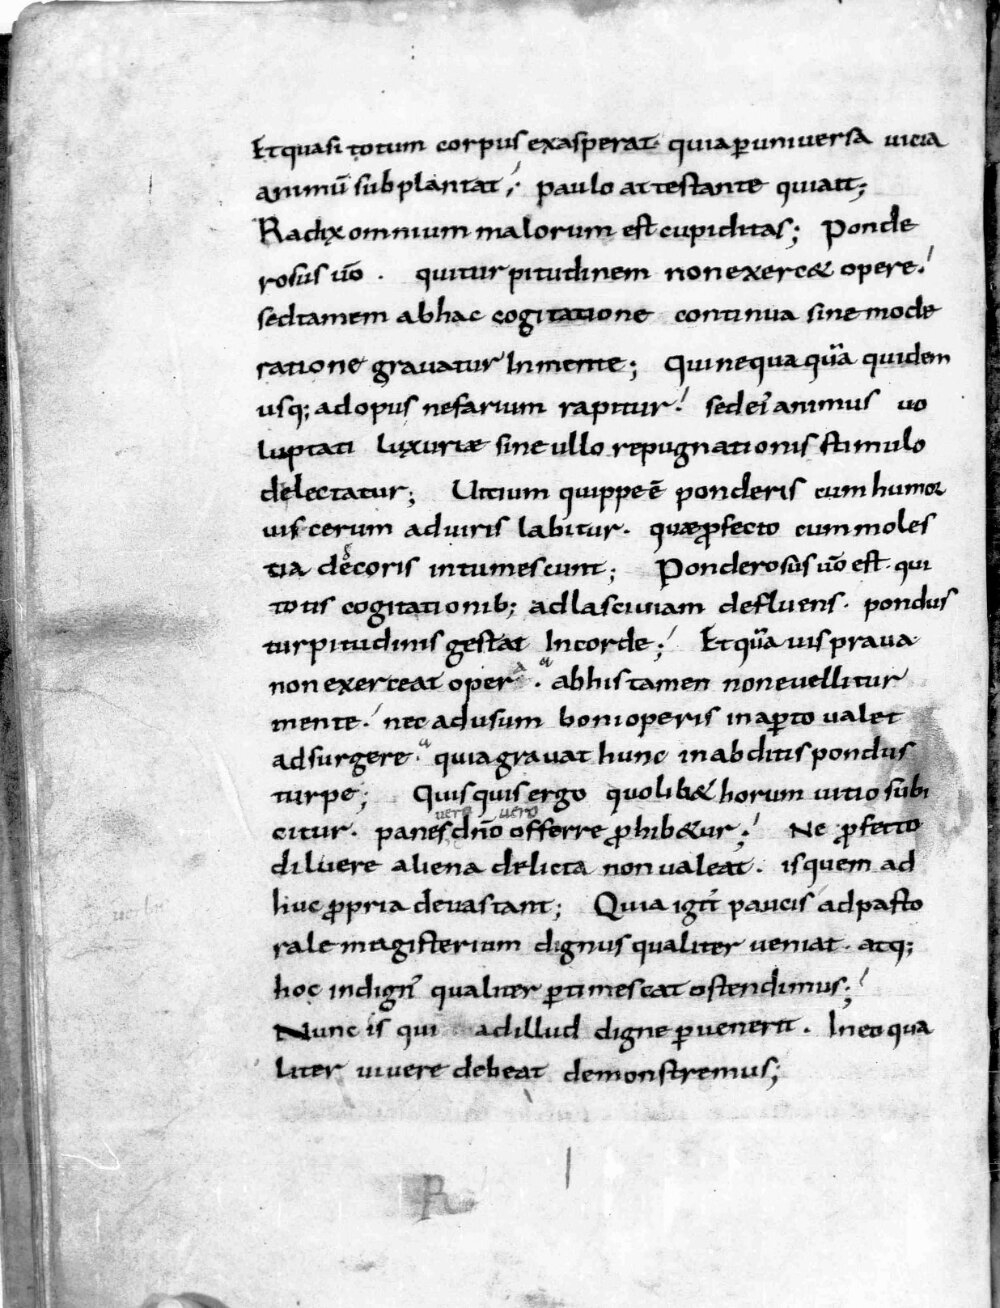 Et quasi totum corpus exasperat. quia ꝑ universa vicia
animū subplantat; paulo attestante qui att̄;
Radix omnium malorum est cupiditas; Ponde
rosus ūo . qui turpitudinem non exerc& opere.
sed tamen ab hac cogitatione continua sine mode
ratione gravatur In mente; Qui nequaquā quidem
usq; ad opus nefarium rapitur! sed ei' animus vo
luptati luxuriæ sine ullo repugnationis stimulo
delectatur; Vitium quippe ē ponderis cum humor
viscerum ad viris labitur. quæ ꝓfecto cum moles
tia dećoris intumescunt; Ponderosus ūo est. qui
totis cogitationib; ad lasciviam defluens. pondus
turpitudinis gestat In corde; Et quā vis prava
non exerceat opera. ab his tamen non evellitur
mente. nec ad usum boni operis in aꝑto valet
adsurgere. quia gravat hunc in abditis pondus
turpe; Quisquis ergo quolib& horum vitio subi
citur. panes dn̄o offerre ꝓhib&ur; Ne ꝓfecto
diluere aliena delicta non valeat. is quem ad
huc ꝓpria devastant; Quia igit̄ paucis ad pasto
rale magisterium dignus qualiter veniat. atq;
hoc indign' qualiter ꝑtimescat ostendimus;
Nunc is qui ad illud digne ꝑvenerit. In eo qua
liter vivere debeat demonstremus;
R